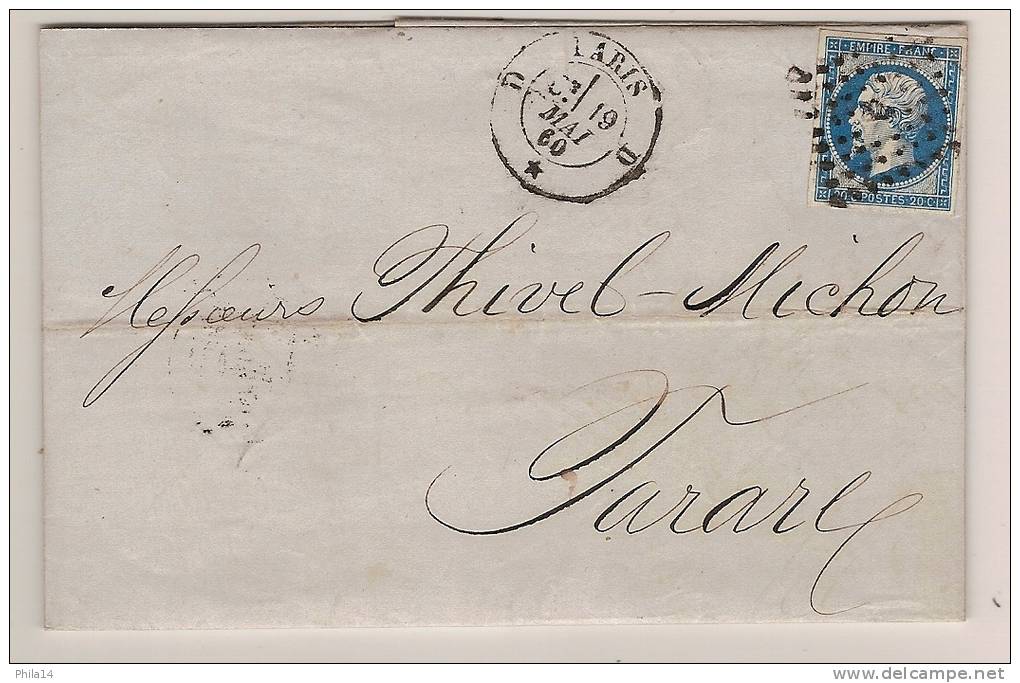 D PARIS D
19
MAI
60
EMPIRE FRANC
20 C POSTES 20 C
Messieurs Thivel-Michon
Tarare
Phila14
www.delcampe.net